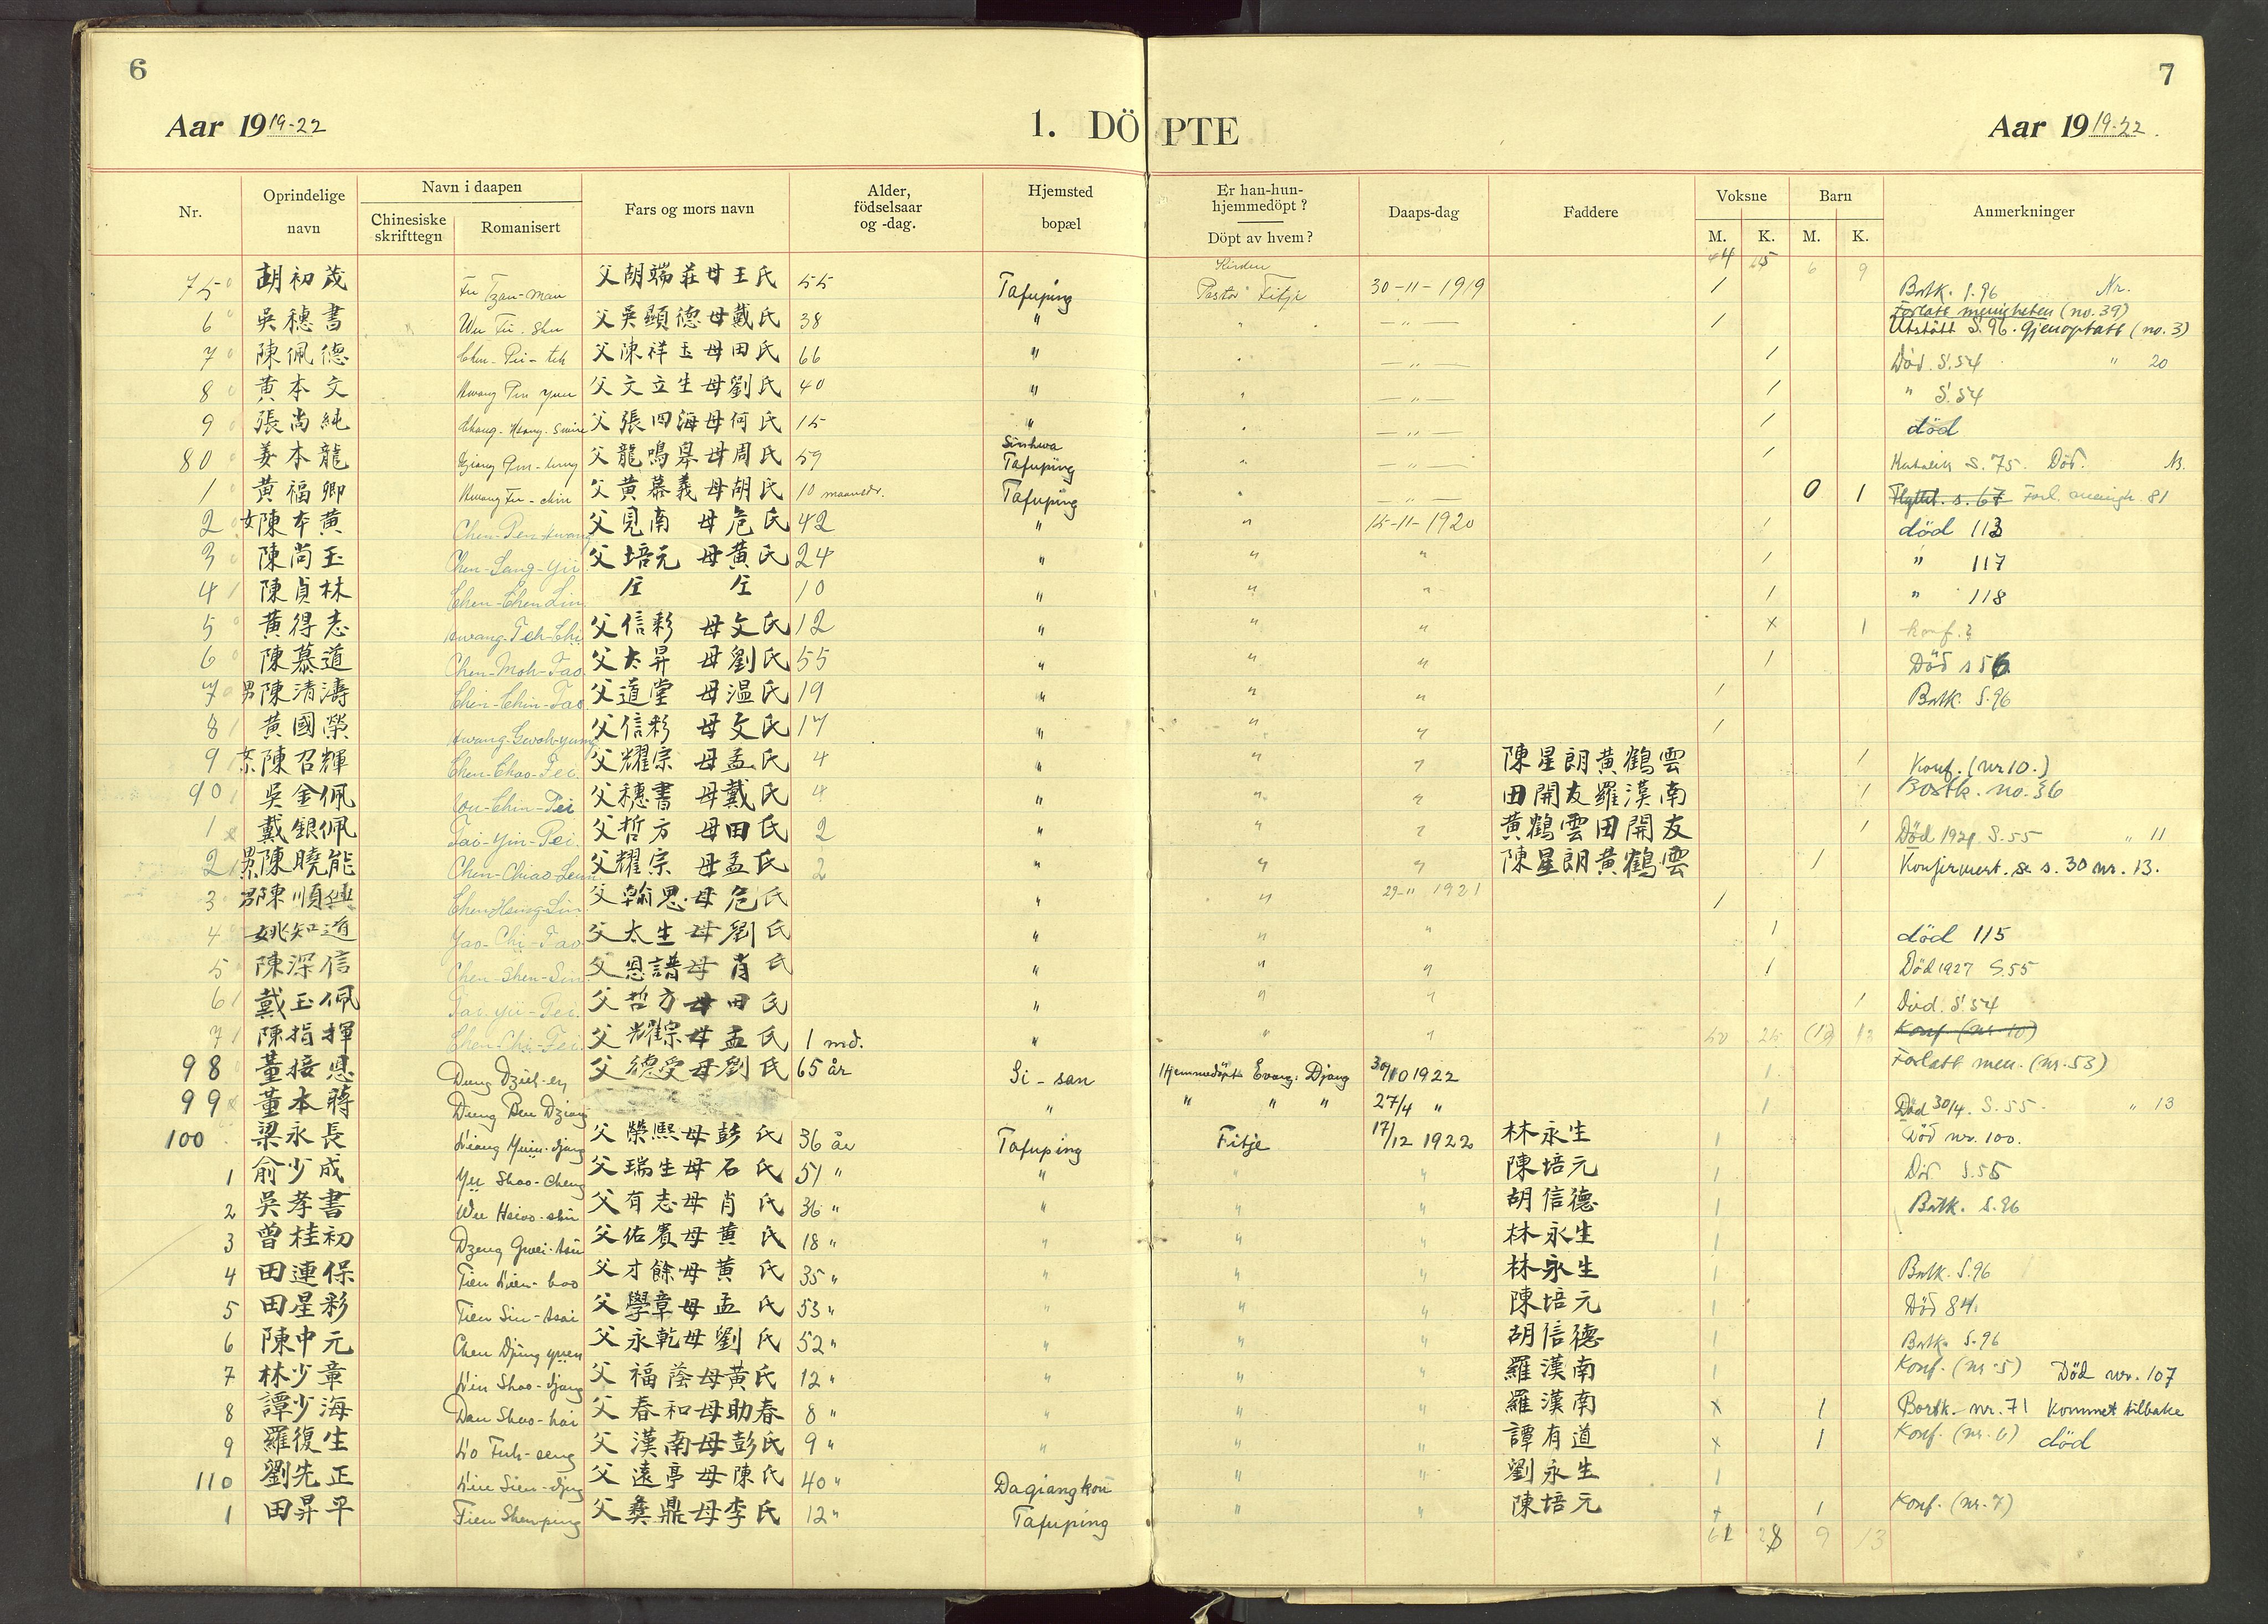 6
7
Aar 1919-22
1. DÖPTE
Aar 1919-22.
Nr.
Oprindelige navn
Navn i daapen
Chinesiske skrifttegn
Romanisert
Fars og mors navn
Alder, födselsaar og -dag.
Hjemsted bopæl
Er han-hun-hjemmedöpt?
Döpt av hvem?
Daaps-dag
Faddere
Voksne
M.
K.
Barn
M.
K.
Anmerkninger
75 胡初茂 父胡端莊母王氏 55 Tafuping Pastor Fitje 30-11-1919 1 Bortk. S.96 Nr.
Forlatt menigheten (no. 39)
6 吳穗書 Wu Fu-shu 父吳顯德母戴氏 38 " 1 Utstött S.96. Gjenoptatt (no. 3)
7 陳佩德 Chen-Pei-teh 父陳祥玉母田氏 66 " 1 Död. S.54 " 20
8 黄本文 Hwang Pin 父文立生母劉氏 40 " 1 " S.54
9 張尚純 父張四海母何氏 15 " 1 död
80 姜本龍 父龍鳴皋母周氏 59 Sinhwa Tafuping 1 S.75. Död.
1 黄福卿 Hwang Fu-chin 父黄慕義母胡氏 10 maaneder. Tafuping 0 1 Flyttet. s. 67 Forl. menigh. 81
2 女陳本黄 Chen-Pen-Hwang 父見南 母危氏 42 " " 15-11-1920 1 död 113
3 陳尚玉 Chen-Sang-Yü 父培元 母黄氏 24 " " " 1 " 117
4 陳貞林 Chen-Chen Lin 仝 仝 10 " " " 1 " 118
5 黄得志 Hwang-Teh-Chi 父信彩 母文氏 12 " " " x 1 konf. 3
6 陳慕道 Chen-Moh-Tao 父太昇 母劉氏 55 " " " 1 Död s 56
7 男陳清濤 Chen-Chin-Tao 父道堂 母温氏 19 " " " 1 Bortk. S.96
8 黄國榮 Hwang-Gwoh-yung 父信彩 母文氏 17 " " " 1
9 陳召輝 Chen-Chao-Fei 父耀宗 母孟氏 4 " " " 陳星朗黄鶴雲 1 Konf. (nr 10.)
90 吳金佩 Wu-Chin-Pei 父穗書 母戴氏 4 " " " 田開友羅漢南 1 Bortk. no. 36
1 戴銀佩 Tai-Yin-Pei 父哲方 母田氏 2 " " " 黄鶴雲田開友 1 Död 1921. S.55 " 11
2 男陳曉能 父耀宗 母孟氏 2 " " " 陳星朗黄鶴雲 1 Konfirmert. se s. 30 nr. 13.
3 陳順興 父翰思母危氏 " " 29-11 1921 1
4 姚知道 Yao-Chi-Tao 父太生母劉氏 " " " 1 död 115
5 陳深信 Chen-Shen-Sin 父恩譜母肖氏 " " " 1 Död 1927 S.55
6 戴玉佩 Tai-yü-Pei 父哲方母田氏 " " " 1 Död. S.54
7 陳指揮 Chen-Chi-Fei 父耀宗母孟氏 1 md. " " " 13 Konf (nr. 10)
98 董接恩 Dung Dzieh-en 父德受母劉氏 65 år Si-san Hjemmedöpt Evang. Djang 30/10 1922 1 Forlatt men. (nr. 53)
99 董本蔣 Dung Ben Dziang " " " " 27/4 " 1 Död 30/4. S.55. " 13
100 梁永長 Liang Yuin-djang 父榮熙母彭氏 36 år Tafuping Fitje 17/12 1922 林永生 1 Död nr. 100.
1 俞少成 Yü Shao-cheng 父瑞生母石氏 51 " " " " 陳培元 1 Död S.55
2 吳孝書 Wu Hsiao-shu 父有志母肖氏 36 " " " " 胡信德 1 Bortk. S.96
3 曾桂初 Dzeng Gwei-tsu 父佑賓母黄氏 18 " " " " 林永生 1
4 田連保 Tien Lien-bao 父才餘母黄氏 35 " " " " 林永生 1 Bortk. S.96
5 田星彩 Tien Sin-tsai 父學章母孟氏 53 " " " " 陳培元 1 Död 84.
6 陳中元 Chen Djung yüen 父永乾母劉氏 52 " " " " 胡信德 1 Bortk. S.96
7 林少章 Lin Shao-djang 父福蔭母黄氏 12 " " " " 羅漢南 1 Konf. (nr. 5) Död nr. 107
8 譚少海 Dan Shao-hai 父春和母助春 8 " " " " 羅漢南 x 1 Bortk. nr. 71 Kommet tilbake
9 羅復生 Lo Fuh-seng 父漢南母彭氏 9 " " " " 譚有道 x 1 Konf. (nr. 6) död
110 劉先正 Liu Sien-djeng 父遠亭母陳氏 40 " Daqiangkou " " 劉永生 1
1 田昇平 Tien Shen-ping 父彝鼎母李氏 12 " Tafuping " " 陳培元 x 1 Konf. (nr. 7)
9 13